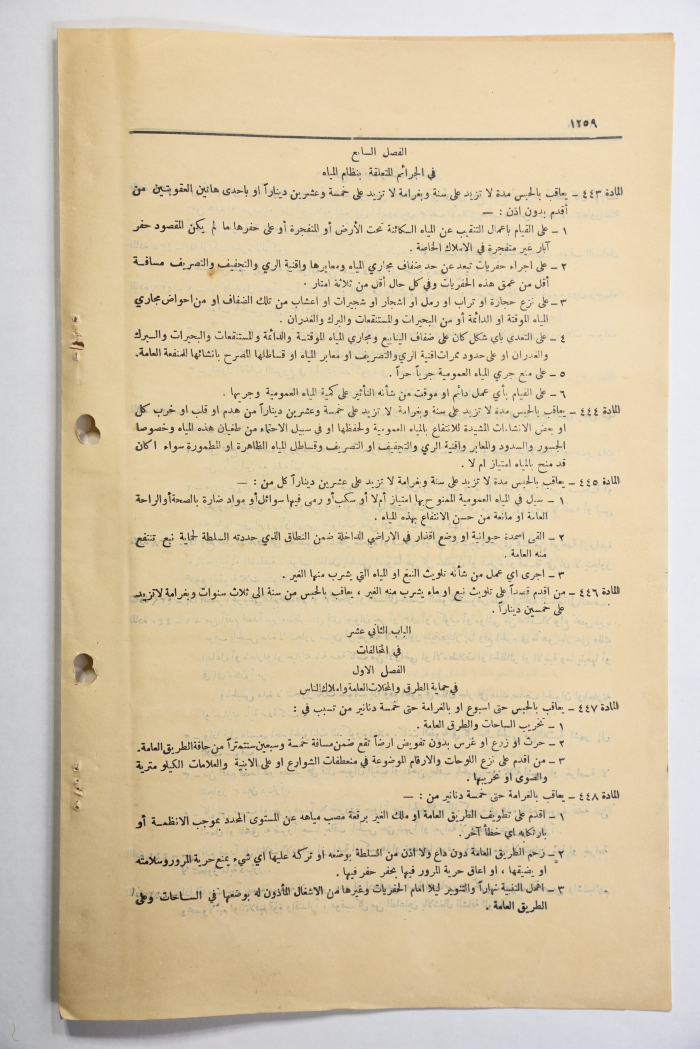 ١٢٥٩
الفصل السابع
في الجرائم المتعلقة بنظام المياه
المادة ٤٤٣ - يعاقب بالحبس مدة لا تزيد على سنة وبغرامة لا تزيد على خمسة وعشرين ديناراً او باحدى هاتين العقوبتين من
أقدم بدون اذن : —
١ - على القيام باعمال التنقيب عن المياه الكائنة تحت الأرض أو المنفجرة أو على حفرها ما لم يكن المقصود حفر
آبار غير متفجرة في الاملاك الخاصة .
٢ - على اجراء حفريات تبعد عن حد ضفاف مجاري المياه ومعابرها واقنية الري والتجفيف والتصريف مسافة
أقل من عمق هذه الحفريات وفي كل حال أقل من ثلاثة امتار .
٣ - على نزع حجارة او تراب او رمل او اشجار او شجيرات او اعشاب من تلك الضفاف او من احواض مجاري
المياه الموقتة او الدائمة أو من البحيرات والمستنقعات والبرك والغدران .
٤ - على التعدي باي شكل كان على ضفاف الينابيع ومجاري المياه الموقتة والدائمة والمستنقعات والبحيرات والبرك
والغدران او على حدود ممرات اقنية الري والتصريف او معابر المياه او قساطلها المصرح بانشائها للمنفعة العامة.
٥ - على منع جري المياه العمومية جرياً حراً .
٦ - على القيام بأي عمل دائم او موقت من شأنه التأثير على كمية المياه العمومية وجريها .
المادة ٤٤٤ - يعاقب بالحبس مدة لا تزيد على سنة وبغرامة لا تزيد على خمسة وعشرين ديناراً من هدم او قلب او خرب كل
او بعض الانشاءات المشيدة للانتفاع بالمياه العمومية ولحفظها او في سبيل الاحتماء من طغيان هذه المياه وخصوصا
الجسور والسدود والمعابر واقنية الري والتجفيف او التصريف وقساطل المياه الظاهرة او المطمورة سواء اكان
قد منح بالمياه امتياز ام لا .
المادة ٤٤٥ - يعاقب بالحبس مدة لا تزيد على سنة وبغرامة لا تزيد على عشرين ديناراً كل من : —
١ - سيل في المياه العمومية الممنوح بها امتياز أم لا أو سكب أو رمى فيها سوائل أو مواد ضارة بالصحة أو الراحة
العامة او مانعة من حسن الانتفاع بهذه المياه .
٢ - القى اسمدة حيوانية او وضع اقذار في الاراضي الداخلة ضمن النطاق الذي حددته السلطة لحماية نبع تنتفع
منه العامة .
٣ - اجرى اي عمل من شأنه تلويث النبع او المياه التي يشرب منها الغير .
المادة ٤٤٦ - من اقدم قصداً على تلويث نبع او ماء يشرب منه الغير ، يعاقب بالحبس من سنة الى ثلاث سنوات وبغرامة لا تزيد
على خمسين ديناراً .
الباب الثاني عشر
في المخالفات
الفصل الاول
في حماية الطرق والمحلات العامة واملاك الناس
المادة ٤٤٧ - يعاقب بالحبس حتى اسبوع او بالغرامة حتى خمسة دنانير من تسبب في :
١ - تخريب الساحات والطرق العامة .
٢ - حرث او زرع او غرس بدون تفويض ارضاً تقع ضمن مسافة خمسة وسبعين سنتمتراً من حافة الطريق العامة.
٣ - من اقدم على نزع اللوحات والارقام الموضوعة في منعطفات الشوارع او على الابنية والعلامات الكيلو مترية
والصوى او تخريبها .
المادة ٤٤٨ - يعاقب بالغرامة حتى خمسة دنانير من : —
١ - اقدم على تطويف الطريق العامة او ملك الغير برفعة مصب مياهه عن المستوى المحدد بموجب الانظمة أو
بارتكابه اي خطأ آخر .
٢ - زحم الطريق العامة دون داع ولا اذن من السلطة بوضعه او تركه عليها اي شيء يمنع حرية المرور وسلامته
او يضيقها ، او اعاق حرية المرور فيها بحفر حفر فيها .
٣ - اهمل التنبيه نهاراً والتنوير ليلا امام الحفريات وغيرها من الاشغال المأذون له بوضعها في الساحات وعلى
الطريق العامة .